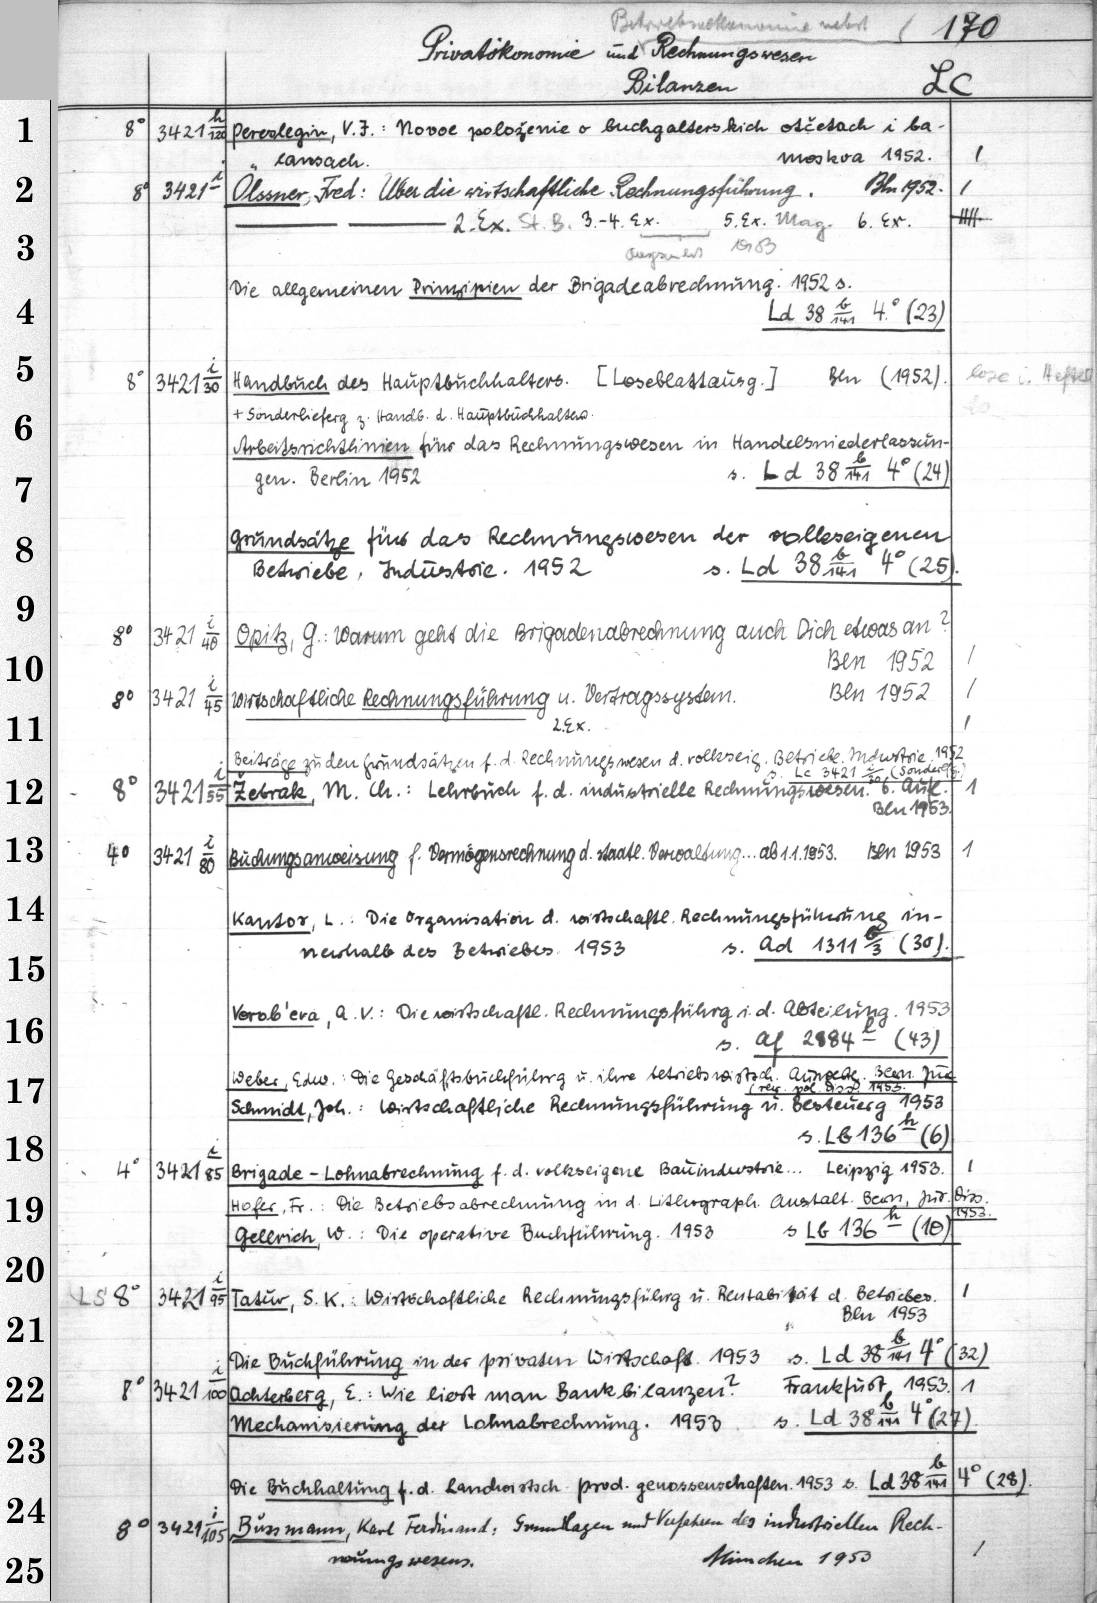 Betriebsökonomie nebst
170
Privatökonomie und Rechnungswesen
Bilanzen LC
1 8° 3421 h/120 Perevlegin, V.F.: Novoe položenie o buchgalterskich otčetach i ba-
lansach. Moskva 1952. 1
2 8° 3421 i Ölssner, Fred: Über die wirtschaftliche Rechnungsführung. Bln 1952. 1
2. Ex. St. B. 3.-4. Ex. 5. Ex. Mag. 6. Ex.
3
Die allgemeinen Prinzipien der Brigadeabrechnung. 1952 s.
4 Ld 38 b/141 4° (23)
5 8° 3421 i/30 Handbuch des Hauptbuchhalters. [Loseblattausg.] Bln (1952). lose i. Heften
+ Sonderlieferg z. Handb. d. Hauptbuchhalters.
6 Arbeitsrichtlinien für das Rechnungswesen in Handelsniederlassun-
7 gen. Berlin 1952 s. Ld 38 b/141 4° (24)
8 Grundsätze für das Rechnungswesen der volkseigenen
Betriebe, Industrie. 1952 s. Ld 38 b/141 4° (25).
9
8° 3421 i/40 Opitz, G.: Warum geht die Brigadenabrechnung auch Dich etwas an?
10 Bln 1952 1
8° 3421 i/45 Wirtschaftliche Rechnungsführung u. Vertragssystem. Bln 1952 1
11 2. Ex. 1
Beiträge zu den Grundsätzen f. d. Rechnungswesen d. volkseig. Betriebe. Industrie. 1952
s. Lc 3421 i/30 (Sonderlfg.)
12 8° 3421 i/55 Žebrak, M. Ch.: Lehrbuch f. d. industrielle Rechnungswesen. 6. Aufl. 1
Bln 1953.
13 4° 3421 i/80 Buchungsanweisung f. Vermögensrechnung d. staatl. Verwaltung... ab 1.1.1953. Bln 1953 1
14 Kantor, L.: Die Organisation d. wirtschaftl. Rechnungsführung in-
nerhalb des Betriebes. 1953 s. Ad 1311 b/3 (30).
15
Vorob'eva, A.V.: Die wirtschaftl. Rechnungsführg i. d. Abteilung. 1953
16 s. Af 2884 h (43)
17 Weber, Edw.: Die Geschäftsbuchführg u. ihre betriebswirtsch. Ausweitg. Bern. Jur.
(rer. pol. Diss. 1953.
Schmidt, Joh.: Wirtschaftliche Rechnungsführung u. Besteuerg 1953
s. Lb 136 h (6)
18 4° 3421 i/85 Brigade-Lohnabrechnung f. d. volkseigene Bauindustrie... Leipzig 1953. 1
19 Hofer, Fr.: Die Betriebsabrechnung in d. Lithograph. Anstalt. Bern, Jur. Diss.
1953.
Gellrich, W.: Die operative Buchführung. 1953 s Lb 136 h (10)
20
LS 8° 3421 i/95 Tatur, S. K.: Wirtschaftliche Rechnungsführg u. Rentabilität d. Betriebes. 1
Bln 1953
21
Die Buchführung in der privaten Wirtschaft. 1953 s. Ld 38 b/141 4° (32)
22 8° 3421 i/100 Achterberg, E.: Wie liest man Bankbilanzen? Frankfurt, 1953. 1
Mechanisierung der Lohnabrechnung. 1953 s. Ld 38 b/141 4° (27).
23
Die Buchhaltung f. d. Landwirtsch. prod. genossenschaften. 1953 s. Ld 38 b/141 4° (28).
24 8° 3421 i/105 Bussmann, Karl Ferdinand: Grundlagen und Verfahren des industriellen Rech-
25 nungswesens. München 1953 1